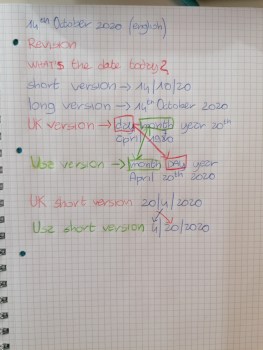 14th October 2020 (english)
Revision
What's the date today?
short version → 14/10/20
long version → 14th October 2020
UK version → day month year 20th
April 1980
Use version → month Day year
April 20th 2020
UK short version 20/4/2020
Use short version 4/20/2020